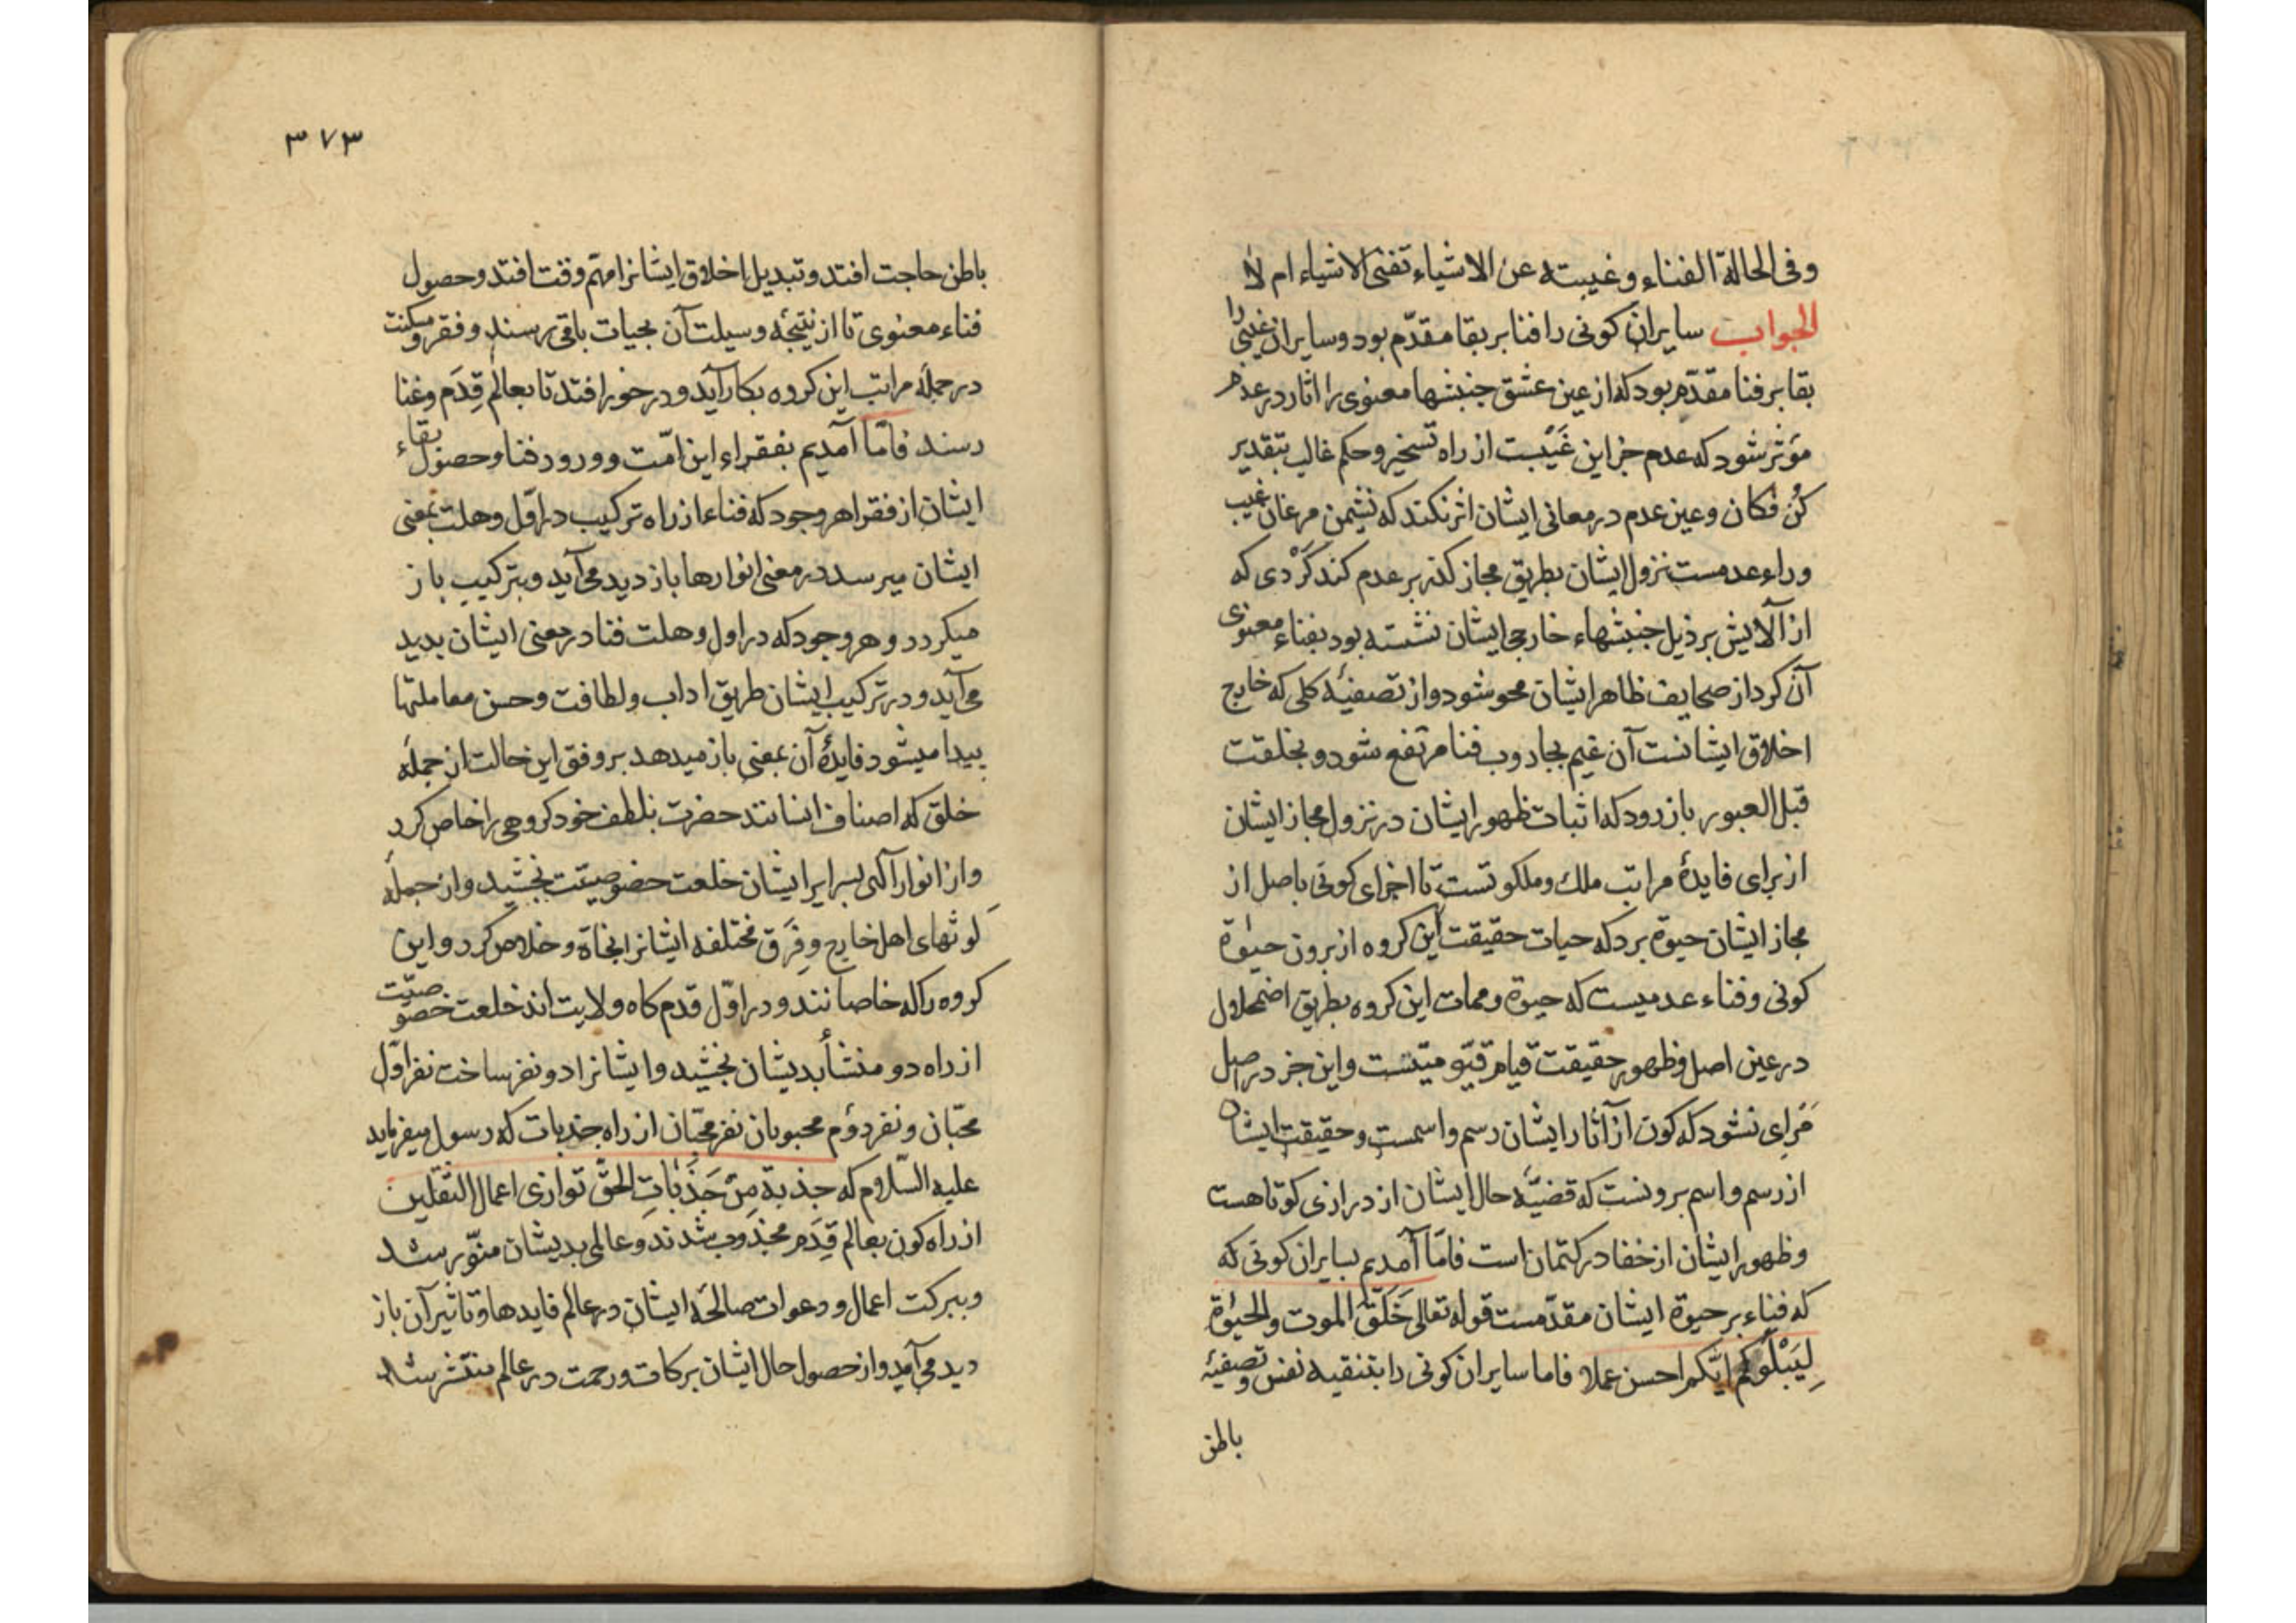 وفی الحالة الفناء وغیبته عن الاشیاء تفنی الاشیاء ام لا
الجواب سایران کونی را فنا بر بقا مقدّم بود وسایران غیبی را
بقا بر فنا مقدّم بود که از عین عشق جنبشها معنوی را اثار در عدم
مؤثر شود که عدم جز این غَیْبت از راه تسخیر وحکم غالب بتقدیر
کُن فکان وعین عدم در معانی ایشان اثر نکند که نشیمن مرغان غیب
وراء عدمست نزول ایشان بطریق مجاز کذر بر عدم کند کَرْدی که
از آلایش بر ذیل جنبشهاء خارجی ایشان نشسته بود بفناء معنوی
آن کرد از صحایف ظاهر ایشان محو شود واز تصفیهٔ کلی که خارج
اخلاق ایشانست آن غیم بجاروب فنا مرتفع شود و بخلقت
قبل العبور باز رود که اثبات ظهور ایشان در نزول مجاز ایشان
از برای فایدهٔ مراتب ملك وملکوتست تا اجزای کونی باصل از
مجاز ایشان حیوة برد که حیات حقیقت این کروه از برون حیوة
کونی وفناء عدمیست که حیوة وممات این کروه بطریق اضمحلال
در عین اصل وظهور حقیقت قیام قیّو میّتست واین جز در اصل
مَرای نشود که کون از آثار ایشان رسم واسمست وحقیقت ایشان
از رسم واسم برونست که قضیّهٔ حال ایشان از درازی کوتاهست
وظهور ایشان از خفا در کتمان است فامّا آمدیم بسایران کونی که
که فناء بر حیوة ایشان مقدّمست قوله تعالی خَلَقَ الموت والحیوٰة
لِیَبْلُوَکُم ایّکم احسن عملا فاما سایران کونی را بتنقیه نفس و تصفیهٔ
باطن
٣٧٣
باطن حاجت افتد وتبدیل اخلاق ایشانرا مهّم وقت افتد وحصول
فناء معنوی تا از نتیجهٔ وسیلت آن بحیات باقی رسند وفقر و مسکنت
در جملهٔ مراتب این کروه بکار آید و درخور افتد تا بعالم قِدَم وغنا
رسند فامّا آمدیم بفقراء این امّت وورود فنا وحصول بقاء
ایشان از فقرا هر وجود که فناء از راه ترکیب در اوّل وهلت بمعنی
ایشان میرسد در معنی انوارها باز دید می آید وبترکیب باز
میکردد و هر وجود که در اول وهلت فنا در معنی ایشان بدید
می آید و در ترکیب ایشان طریق اداب ولطافت وحسن معاملتها
پیدا میشود فایدهٔ آن بمعنی باز میدهد بر وفق این حالت از جملهٔ
خلق که اصناف انسانند حضرت بلطف خود کروهی را خاص کرد
واز انوار آلهی بسرایر ایشان خلعت خصوصیّت بخشید واز جملهٔ
لَوثهای اهل خارج وفِرَق مختلفه ایشانرا نجاة وخلاص کرد واین
کروه را که خاصانند و در اوّل قدم کاه ولایت اند خلعت خصوصیّت
از راه دو منشأ بدیشان بخشید وایشانرا دو نفر ساخت نفر اوّل
محبّان ونفر دوّم محبوبان نفر محبّان از راه جذبات که رسول میفرماید
علیه السّلام که جذبة مِنْ جَذَبَاتِ الحَقِّ توازی اعمال الثقلین
از راه کون بعالم قِدَم مجذوب شدند وعالمی بدیشان منوّر شد
وببرکت اعمال ودعوات صالحهٔ ایشان در عالم فایدها وتاثیر آن باز
دید می آمد واز حصول حال ایشان برکات ورحمت در عالم منتشر شد